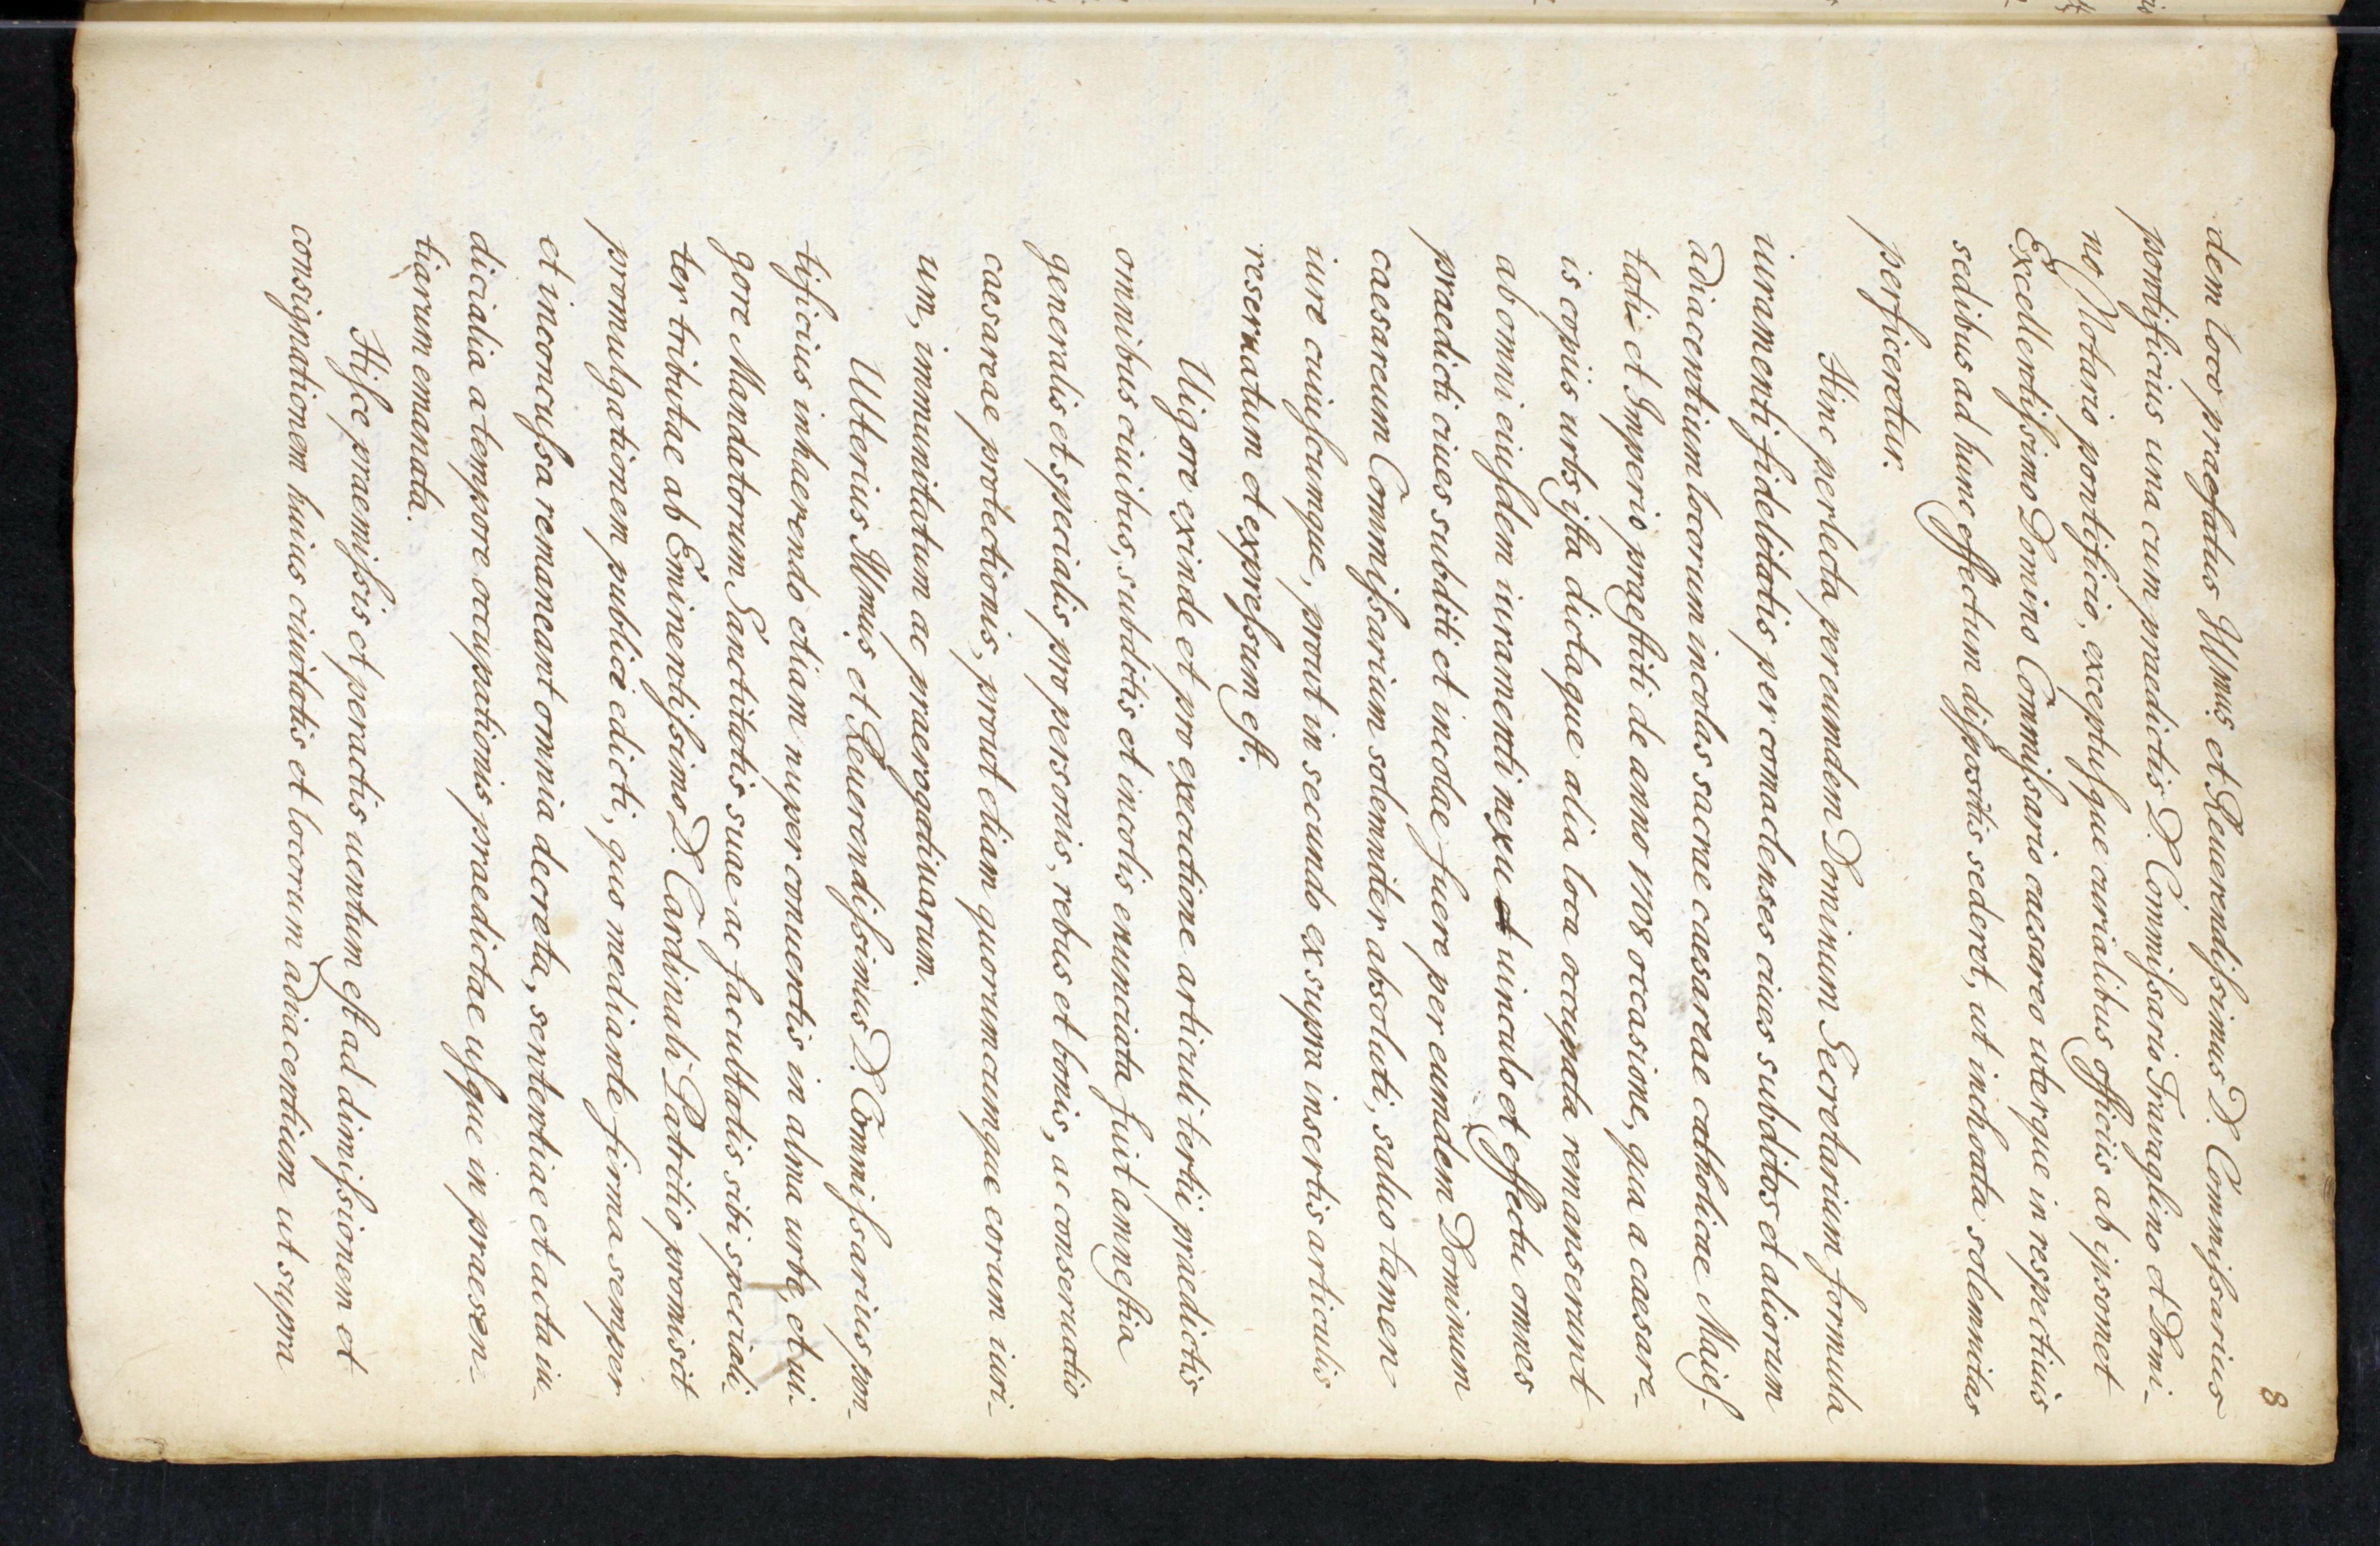 8
dem loco praefatus Illmus et Reuerendissimus D. Commissarius
pontificius una cum praedictis D. Commissario Travaglino et Domi-
no Notario pontificio, exceptusque curialibus officiis ab ipsomet
Excellentissimo Domino Commissario caesareo uterque in respectiuis
sedibus ad hunc effectum dispositis sederet, ut inchoata solemnitas
perficeretur.
Hinc perlecta per eumdem Dominum Secretarium formula
iuramenti fidelitatis per comaclenses ciues subditos et aliorum
adiacentium locorum incolas sacrae caesareae catholicae Maies-
tati et Imperio praestiti de anno 1708 occasione, qua a caesare-
is copiis urbs ista dictaque alia loca occupata remanserunt
ab omni eiusdem iuramenti nexu et uinculo et effectu omnes
praedicti ciues subditi et incolae fuere per eumdem Dominum
caesareum Commissarium solemniter absoluti, saluo tamen
iure cuiuscumque, prout in secundo ex supra insertis articulis
reseruatum et expressum est.
Uigore exinde et pro executione articuli tertii praedictis
omnibus ciuibus, subditis et incolis enunciata fuit amnestia
generalis et specialis pro personis, rebus et bonis, ac conseruatio
caesareae protectionis, prout etiam quorumcumque eorum iuri-
um, immunitatum ac praerogatiuarum.
Ulterius Illmus et Reuerendissimus D. Commissarius pon-
tificius inhaerendo etiam nuper conuentis in alma urbe, et ui-
gore Mandatorum Sanctitatis suae ac facultatis sibi speciali-
ter tributae ab Eminentissimo D. Cardinali Patritio promisit
promulgationem publici edicti, quo mediante firma semper
et inconcussa remaneant omnia decreta, sententiae et acta iu-
dicialia a tempore occupationis praedictae usque in praesen-
tiarum emanata.
Hisce praemissis et peractis uentum est ad dimissionem et
consignationem huius ciuitatis et locorum adiacentium ut supra